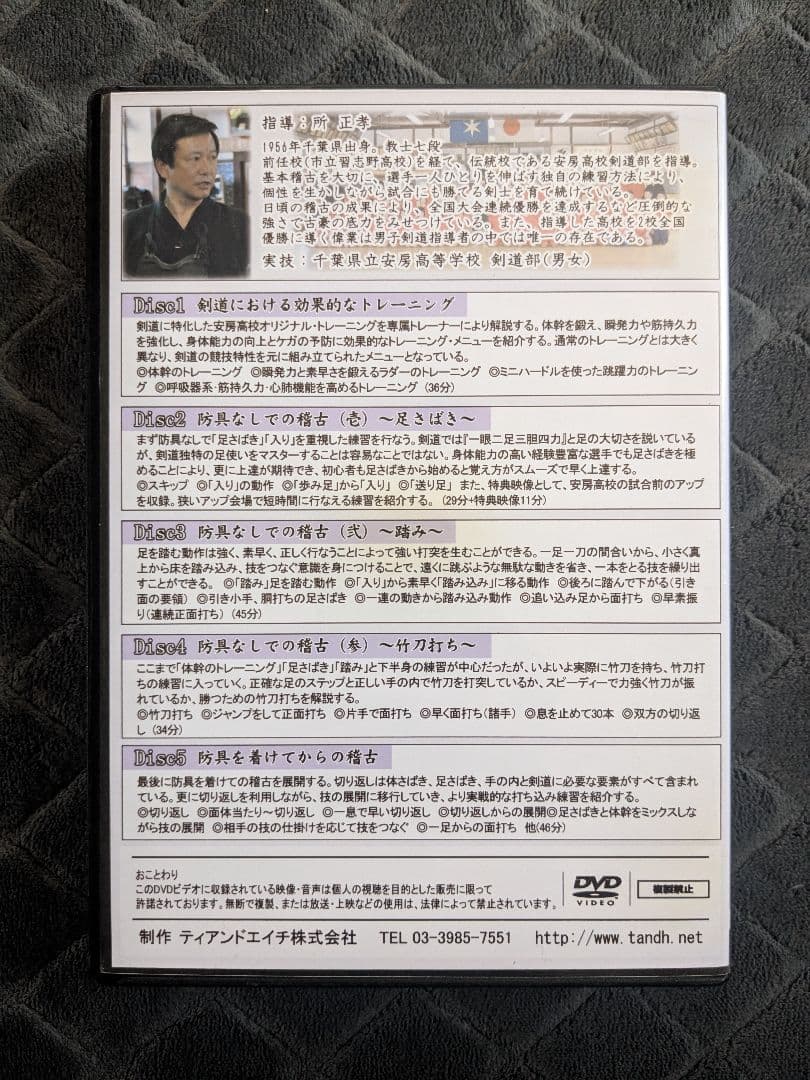 指導：所 正孝
1956年千葉県出身。教士七段
前任校(市立習志野高校)を経て、伝統校である安房高校剣道部を指導。
基本稽古を大切に、選手一人ひとりを伸ばす独自の練習方法により、
個性を生かしながら試合にも勝てる剣士を育て続けている。
日頃の稽古の成果により、全国大会連続優勝を達成するなど圧倒的な
強さで古豪の底力をみせつけている。また、指導した高校を2校全国
優勝に導く偉業は男子剣道指導者の中では唯一の存在である。
実技：千葉県立安房高等学校 剣道部(男女)
Disc1 剣道における効果的なトレーニング
剣道に特化した安房高校オリジナル・トレーニングを専属トレーナーにより解説する。体幹を鍛え、瞬発力や筋持久力
を強化し、身体能力の向上とケガの予防に効果的なトレーニング・メニューを紹介する。通常のトレーニングとは大きく
異なり、剣道の競技特性を元に組み立てられたメニューとなっている。
◎体幹のトレーニング ◎瞬発力と素早さを鍛えるラダーのトレーニング ◎ミニハードルを使った跳躍力のトレーニン
グ ◎呼吸器系・筋持久力・心肺機能を高めるトレーニング (36分)
Disc2 防具なしでの稽古（壱）～足さばき～
まず防具なしで「足さばき」「入り」を重視した練習を行なう。剣道では『一眼二足三胆四力』と足の大切さを説いている
が、剣道独特の足使いをマスターすることは容易なことではない。身体能力の高い経験豊富な選手でも足さばきを極
めることにより、更に上達が期待でき、初心者も足さばきから始めると覚え方がスムーズで早く上達する。
◎スキップ ◎「入り」の動作 ◎「歩み足」から「入り」 ◎「送り足」 また、特典映像として、安房高校の試合前のアップ
を収録。狭いアップ会場で短時間に行なえる練習を紹介する。 (29分+特典映像11分)
Disc3 防具なしでの稽古（弐）～踏み～
足を踏む動作は強く、素早く、正しく行なうことによって強い打突を生むことができる。一足一刀の間合いから、小さく真
上から床を踏み込み、技をつなぐ意識を身につけることで、遠くに跳ぶような無駄な動きを省き、一本をとる技を繰り出
すことができる。 ◎「踏み」足を踏む動作 ◎「入り」から素早く「踏み込み」に移る動作 ◎後ろに踏んで下がる(引き
面の要領) ◎引き小手、胴打ちの足さばき ◎一連の動きから踏み込み動作 ◎追い込み足から面打ち ◎早素振
り(連続正面打ち) (45分)
Disc4 防具なしでの稽古（参）～竹刀打ち～
ここまで「体幹のトレーニング」「足さばき」「踏み」と下半身の練習が中心だったが、いよいよ実際に竹刀を持ち、竹刀打
ちの練習に入っていく。正確な足のステップと正しい手の内で竹刀を打突しているか、スピーディーで力強く竹刀が振
れているか、勝つための竹刀打ちを解説する。
◎竹刀打ち ◎ジャンプをして正面打ち ◎片手で面打ち ◎早く面打ち(諸手) ◎息を止めて30本 ◎双方の切り返
し (34分)
Disc5 防具を着けてからの稽古
最後に防具を着けての稽古を展開する。切り返しは体さばき、足さばき、手の内と剣道に必要な要素がすべて含まれ
ている。更に切り返しを利用しながら、技の展開に移行していき、より実戦的な打ち込み練習を紹介する。
◎切り返し ◎面体当たり～切り返し ◎一息で早い切り返し ◎切り返しからの展開◎足さばきと体幹をミックスしな
がら技の展開 ◎相手の技の仕掛けを応じて技をつなぐ ◎一足からの面打ち 他(46分)
おことわり
このDVDビデオに収録されている映像・音声は個人の視聴を目的とした販売に限って
許諾されております。無断で複製、または放送・上映などの使用は、法律によって禁止されています。
DVD
VIDEO
複製禁止
制作 ティアンドエイチ株式会社 TEL 03-3985-7551 http://www.tandh.net